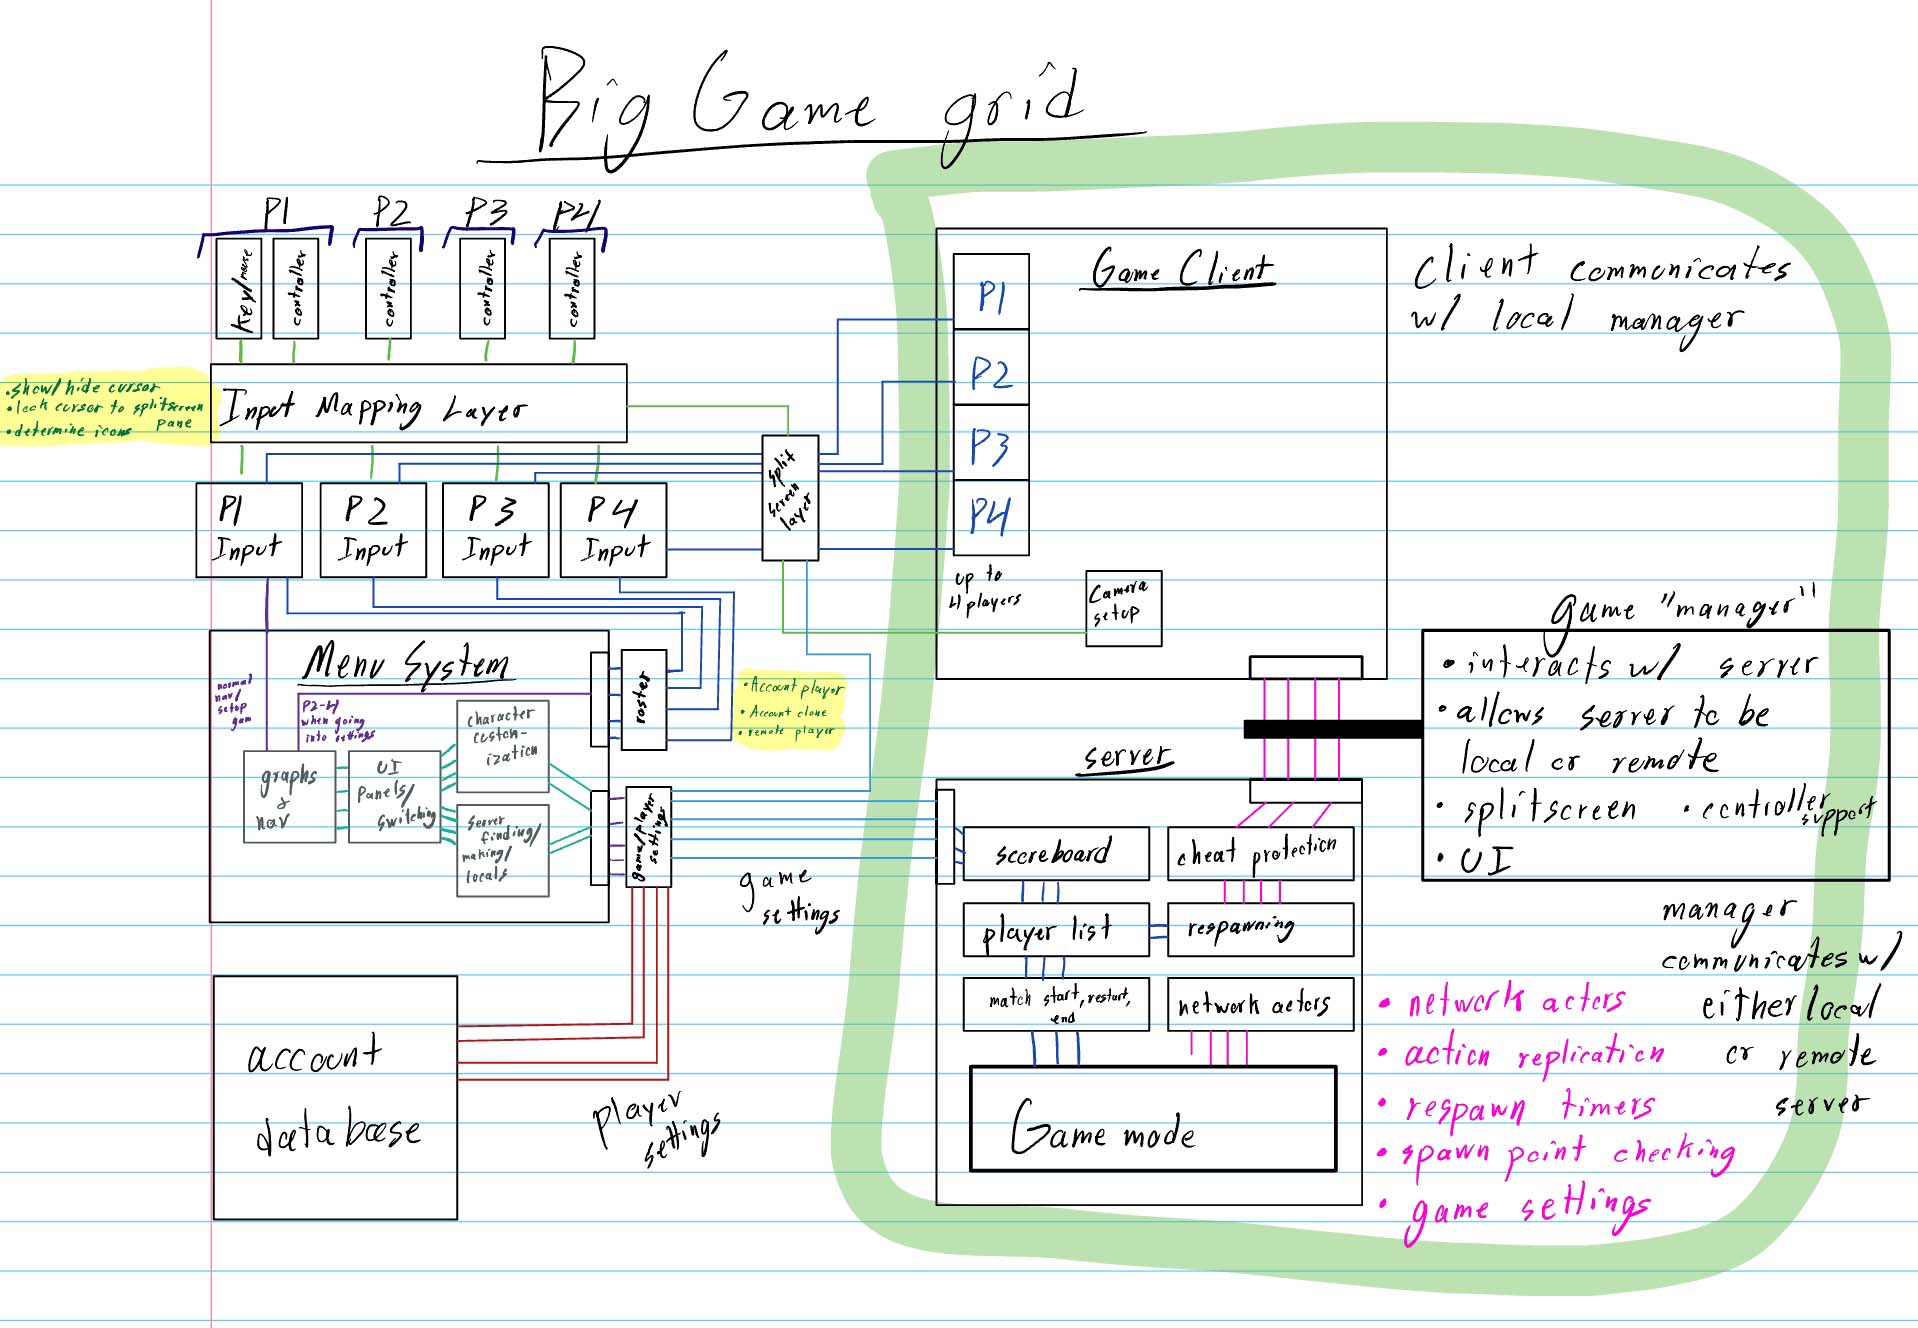 Big Game grid
P1
P2
P3
P4
key/mouse
controller
controller
controller
controller
• show/hide cursor
• lock cursor to splitscreen
pane
• determine icons
Input Mapping Layer
split
screen
layer
P1
Input
P2
Input
P3
Input
P4
Input
Game Client
P1
P2
P3
P4
up to
4 players
Camera
setup
Client communicates
w/ local manager
Menu System
normal
nav/
setup
gam
P2-4
when going
into settings
graphs
&
nav
UI
Panels/
switching
character
custom-
ization
server
finding/
making/
locals
roster
• Account player
• Account clone
• remote player
game/player
settings
game
settings
account
database
player
settings
game "manager"
• interacts w/ server
• allows server to be
local or remote
• splitscreen • controller
support
• UI
manager
communicates w/
either local
or remote
server
server
scoreboard
cheat protection
player list
respawning
match start, restart,
end
network actors
Game mode
• network actors
• action replication
• respawn timers
• spawn point checking
• game settings